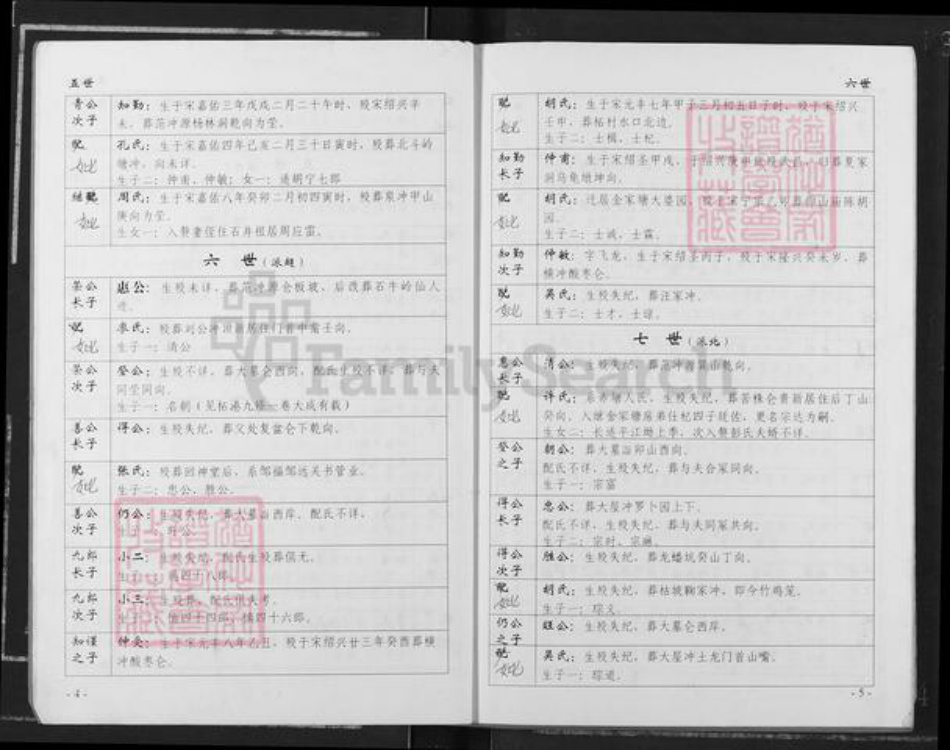 五世
青公
次子
知勤：生于宋嘉佑三年戊戌二月二十午时，殁宋绍兴辛
未，葬范冲源杨林洞乾向为茔。
配
妣
孔氏：生于宋嘉佑四年己亥二月三十日寅时，殁葬北斗岭
塘冲，向未详。
生子二：仲甫、仲敏；女一：适胡宁七郎
继配
妣
周氏：生于宋嘉佑八年癸卯二月初四寅时，殁葬泉冲甲山
庚向为茔。
生女一：入赘妻侄住石井祖居周应雷。
六 世（派超）
荣公
长子
惠公：生殁未详，葬范冲源仓板坡，后改葬石牛的仙人
配
妣
李氏：殁葬刘公冲
生子一：清公
荣公
次子
登公：生殁不详，葬大墓仑西向，配氏生殁不详，葬与夫
同茔同向。
生子一：名朝（见祜港九修一卷大成有载）
善公
长子
得公：生殁失纪，葬父处复盆仑下乾向。
配
妣
张氏：殁葬回神堂后，系邹福邹远关书管业。
生子二：忠公、胜公。
善公
次子
仍公：生殁失纪，葬大墓西岸，配氏不详。
九郎
长子
小二：生殁失纪，配氏生殁葬俱无。
九郎
次子
小三：生殁葬，配氏俱失考。
知谨
之子
仲奕：生于宋元丰八年乙丑，殁于宋绍兴廿三年癸酉葬横
冲酸枣仑。
- 4 -
六世
配
妣
胡氏：生于宋元丰七年甲子三月初五日子时，殁于宋绍兴
壬申，葬祜村水口北边。
生子二：士楫，士杞。
知勤
长子
仲甫：生于宋绍圣甲戌，
洞乌龟墩坤向。
配
妣
胡氏：迁居金家塘大婆园，
园。
生子二：士诚，士霖。
知勤
次子
仲敏：字飞龙，生于宋绍圣丙子，殁于宋隆兴癸未岁，葬
横冲酸枣仑。
配
妣
吴氏：生殁失纪，葬汪家冲。
生子二：士才，士谅。
七 世（派北）
惠公
长子
清公：生殁失纪，葬范冲源巽山乾向。
配
妣
许氏：系赤塘人氏，生殁失纪，葬苦株仑黄新居住后丁山
癸向，入继金家塘房弟仕杞四子廷佐，更名宗达为嗣。
生女二：长适平江坳上李，次入赘彭氏夫婿不详。
登公
之子
朝公：葬大墓卯山西向。
配氏不详，生殁失纪，葬与夫合冢同向。
生子一：宗富
得公
长子
忠公：葬大屋冲罗卜园上下。
配氏不详，生殁失纪，葬与夫同冢共向。
生子二：宗时、宗璩
得公
次子
胜公：生殁失纪，葬龙蟠坑癸山丁向。
配
妣
胡氏：生殁失纪，葬枯坡鞠家冲，即今竹鸡笼。
生子一：琮义。
仍公
之子
旺公：生殁失纪，葬大墓仑西岸。
配
妣
吴氏：生殁失纪，葬大屋冲土龙门首山嘴。
生子一：琮道。
- 5 -
FamilySearch